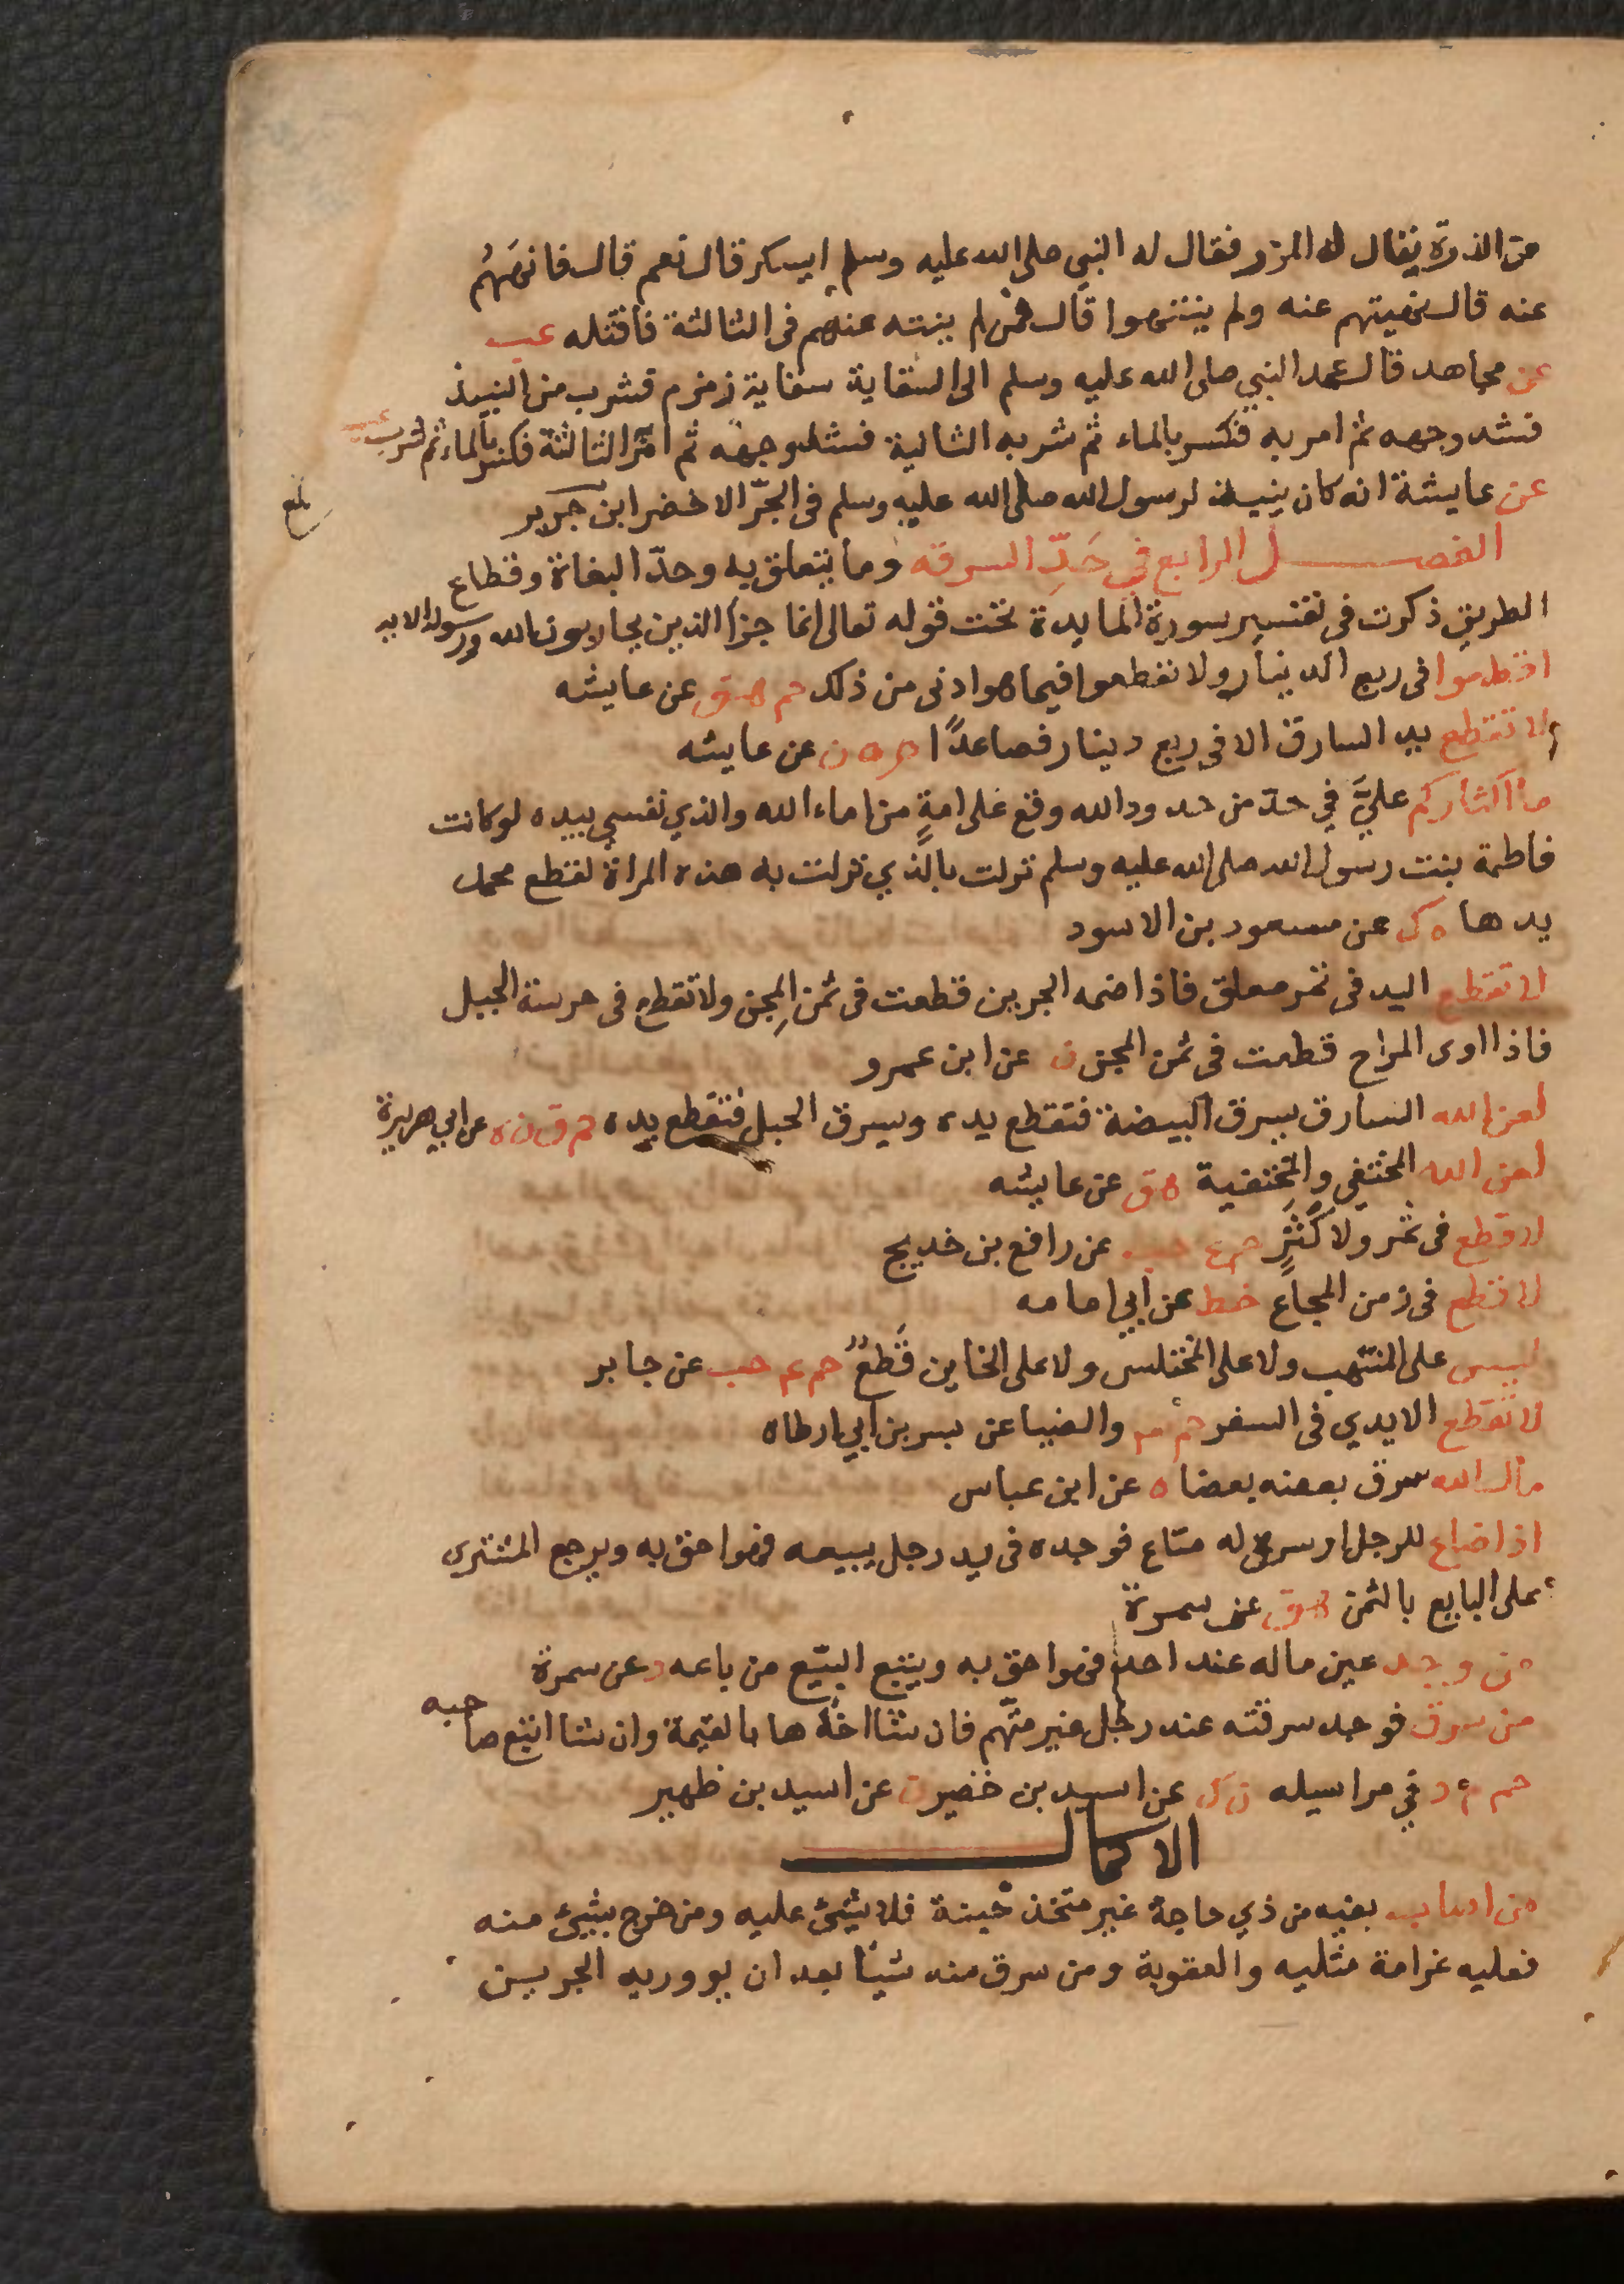 من الذرة يقال له المزر فقال له النبي صلى الله عليه وسلم ايسكر قال نعم قال فانههم
عنه قال نهيتهم عنه ولم ينتهوا قال فمن لم ينته عنهم فى الثالثة فاقتله عب
عن مجاهد قال عمد النبي صلى الله عليه وسلم الى السقاية سقاية زمزم فشرب من النبيذ
فشد وجهه ثم امر به فكسر بالماء ثم شربه الثانية فشد وجهه ثم امر الثالثة فكسر بالماء ثم شرب عب
عن عايشة انه كان ينبذ لرسول الله صلى الله عليه وسلم فى الجرّ الاخضر ابن جرير
الفصل الرابع في حَدِّ السرقه وما يتعلق به وحدّ البغاة وقطاع
الطريق ذكرت فى تفسير سورة المايدة تحت قوله تعالى انما جزا الذين يحاربون الله ورسوله الايه
اقطعوا فى ربع الدينار ولا تقطعوا فيما هو ادنى من ذلك حم هق عن عايشه
لا تقطع يد السارق الا في ربع دينار فصاعدًا م ه ن عن عايشه
ما اكثاركم عليَّ في حدّ من حدود الله وقع على امةٍ من اماء الله والذي نفسي بيده لو كانت
فاطمة بنت رسول الله صلى الله عليه وسلم نزلت بالذي نزلت به هذه المراة لقطع محمد
يدها ه ك عن مسعود بن الاسود
لا تقطع اليد فى ثمر معلق فاذا ضمه الجرين قطعت فى ثمن المِجن ولا تقطع فى حريسة الجبل
فاذا اوى المراح قطعت فى ثمن المجن ن عن ابن عمرو
لعن الله السارق يسرق البيضة فتقطع يده ويسرق الحبل فتقطع يده حم ق ن ه عن ابي هريرة
لعن الله المختفي والمختفية هق عن عايشه
لا قطع فى ثمر ولا كَثَرٍ حم ع حب عن رافع بن خديج
لا قطع فى زمن المجاع خط عن ابي امامه
ليس على المنتهب ولا على المختلس ولا على الخاين قَطعٌ حم ع حب عن جابر
لا تقطع الايدي فى السفر حم والضيا عن بسر بن ابي ارطاه
مال الله سرق بعضه بعضا ه عن ابن عباس
اذا ضاع للرجل او سرق له متاع فوجده فى يد رجل يبيعه فهو احق به ويرجع المشترى
على البايع بالثمن هق عن سمرة
من وجد عين ماله عند احد فهو احق به ويتبع البيّع من باعه د عن سمرة
من سرق فوجد سرقته عند رجل غير متّهم فان شا اخذها بالقيمة وان شا اتبع صاحبه
حم د في مراسيله ن ك عن اسيد بن حضير ن عن اسيد بن ظهير
الاكمال
من اصاب بفيه من ذي حاجة غير متخذ خبنة فلا شيئ عليه ومن خرج بشيئ منه
فعليه غرامة مثليه والعقوبة ومن سرق منه شيئا بعد ان يوويه الجرين